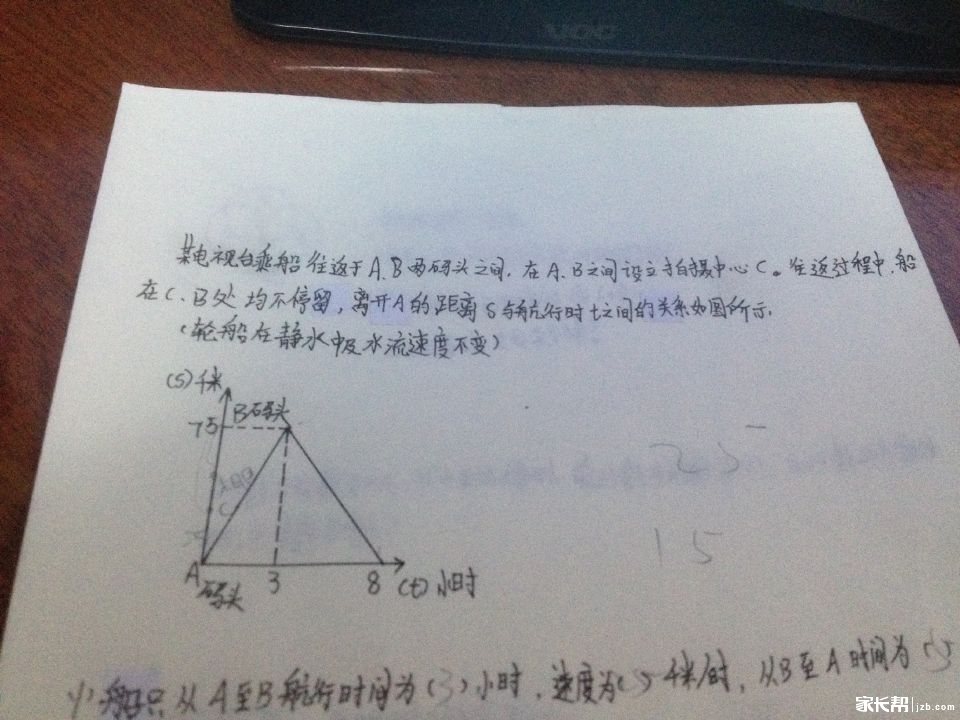 某电视台乘船往返于A.B两码头之间.在A.B之间设立拍摄中心C。往返过程中,船
在C.B处均不停留,离开A的距离S与航行时t之间的关系如图所示.
(轮船在静水中及水流速度不变)
(S)千米
75
B码头
C
25
15
A
码头
3
8
(t)小时
船只从A至B航行时间为(3)小时,速度为( )千米/时,从B至A时间为
家长帮 jzb.com